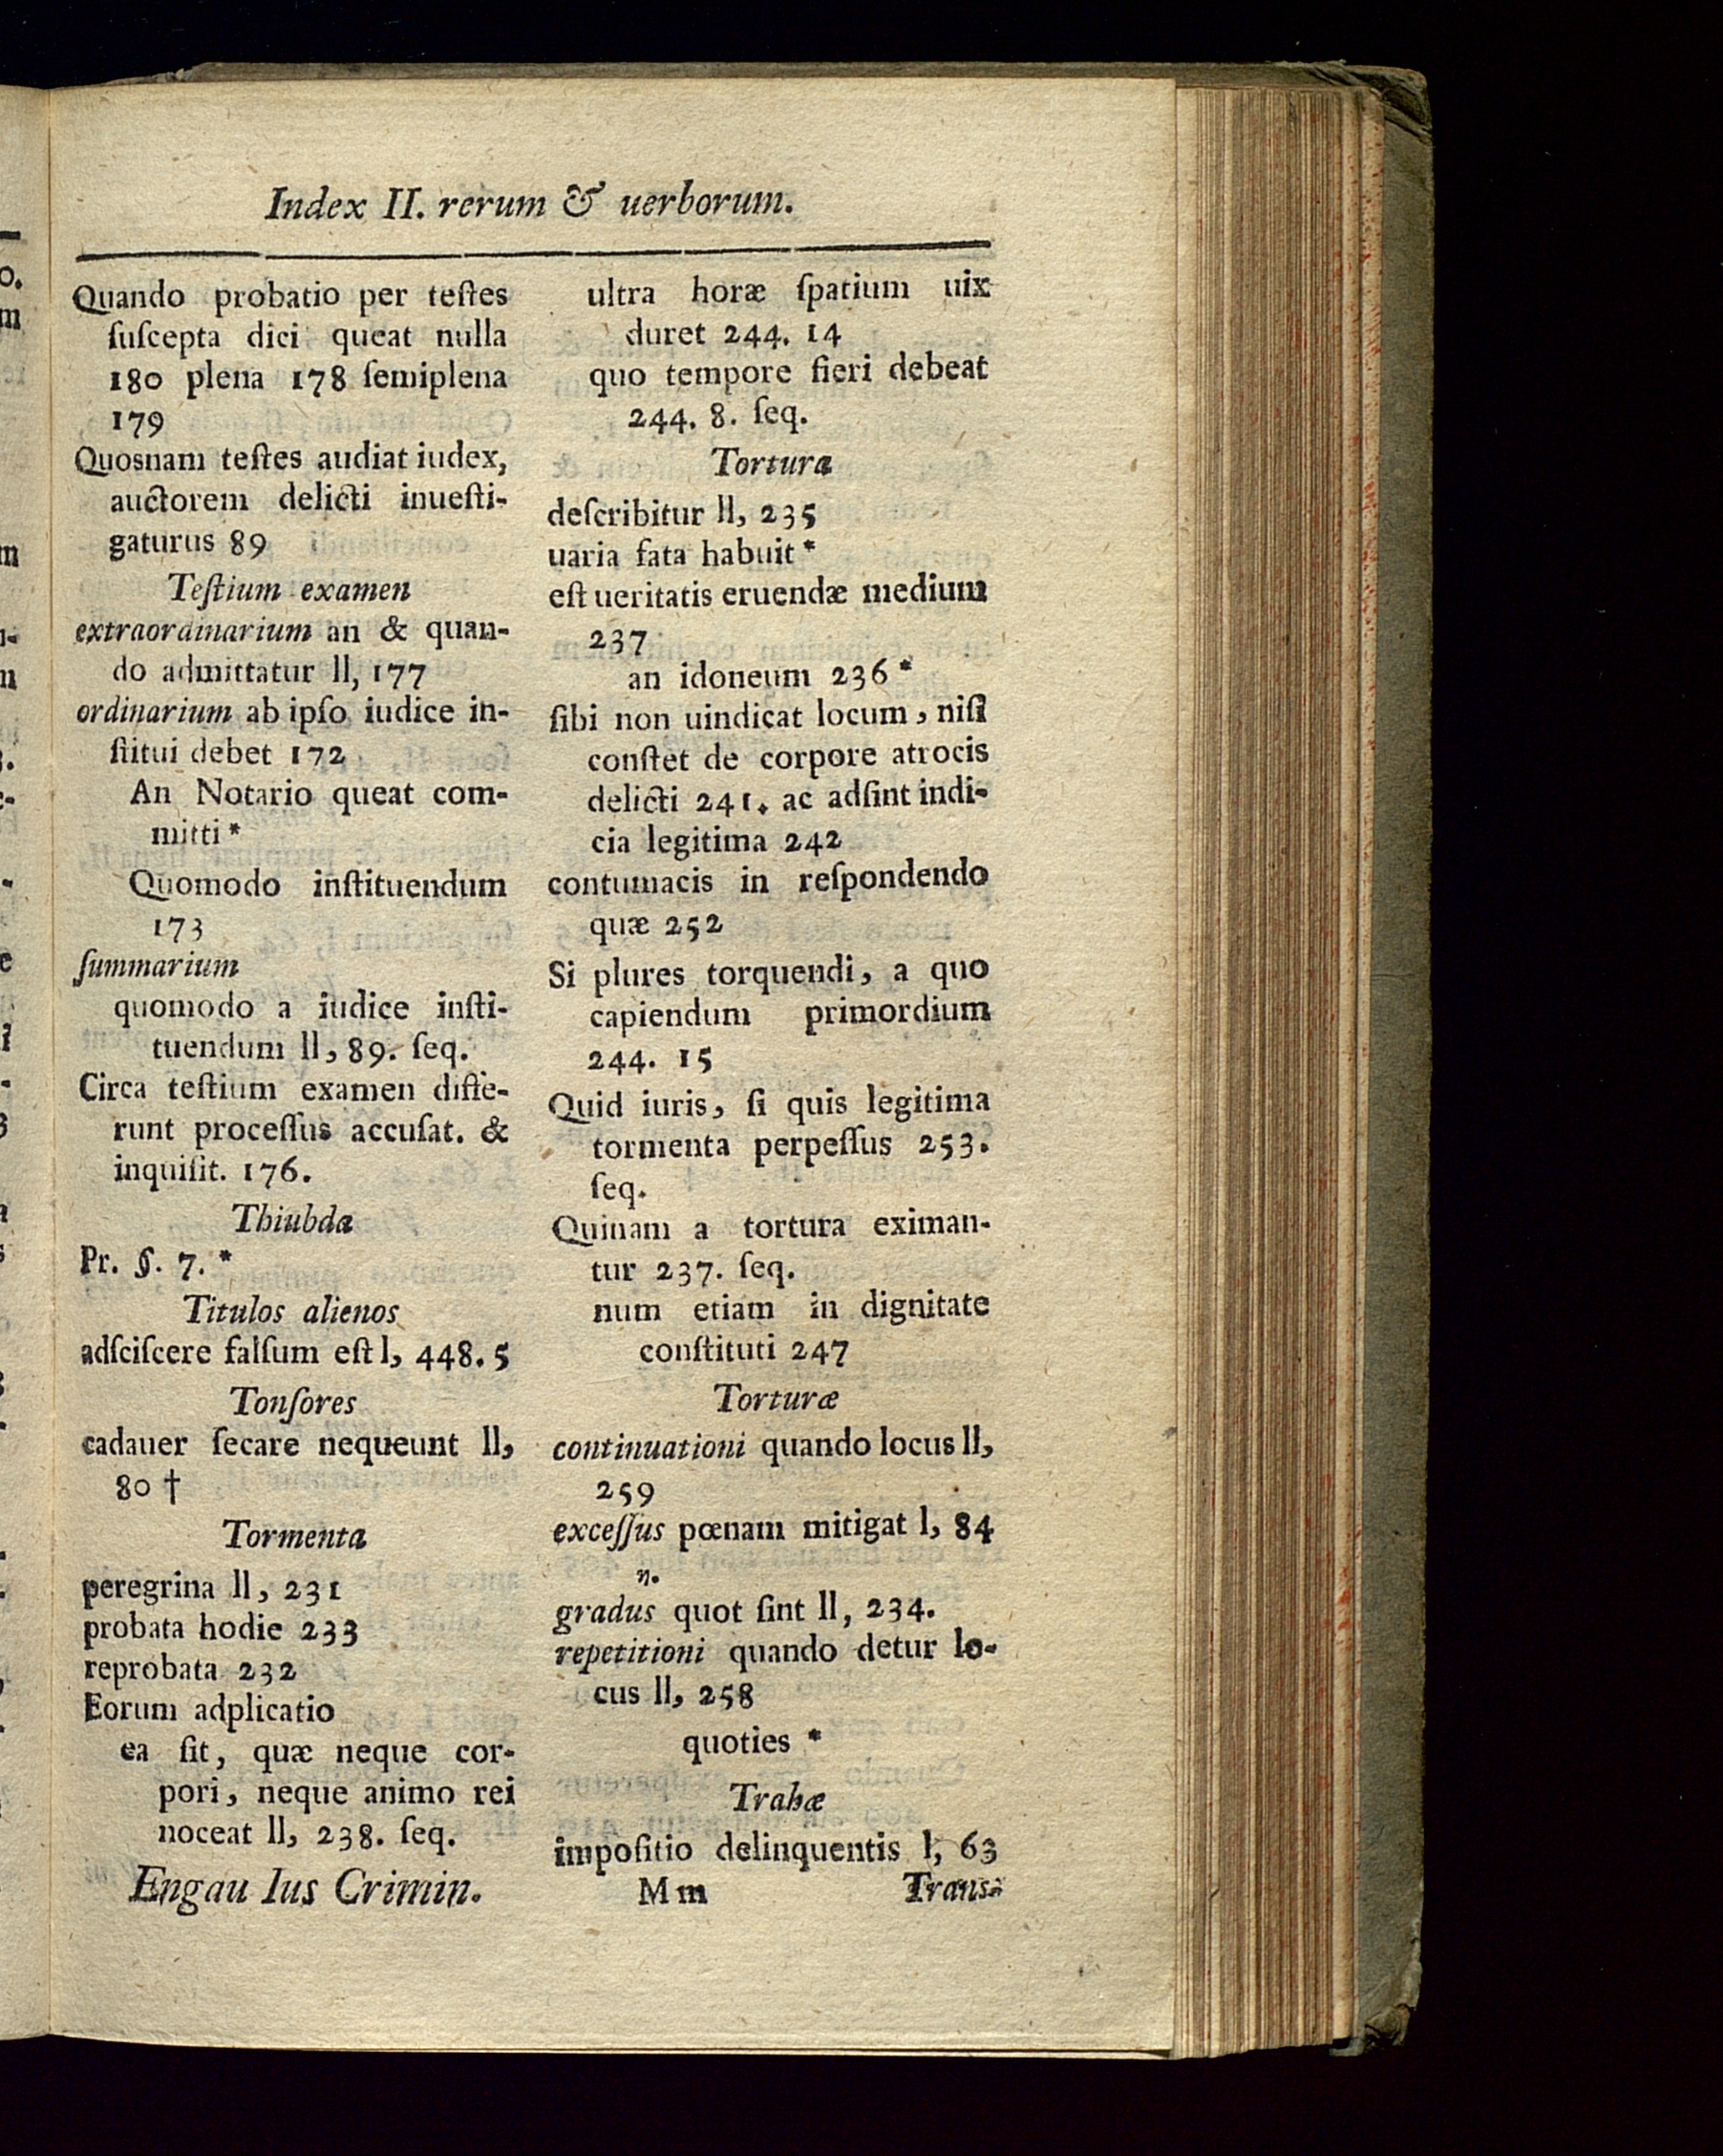 Index II. rerum & uerborum.
Quando probatio per teſtes
ſuſcepta dici queat nulla
180 plena 178 ſemiplena
179
Quosnam teſtes audiat iudex,
auctorem delicti inueſti-
gaturus 89
Teſtium examen
extraordinarium an & quan-
do admittatur ll, 177
ordinarium ab ipſo iudice in-
ſtitui debet 172
An Notario queat com-
mitti *
Quomodo inſtituendum
173
ſummarium
quomodo a iudice inſti-
tuendum ll, 89. ſeq.
Circa teſtium examen diffe-
runt proceſſus accuſat. &
inquiſit. 176.
Thiubda
Pr. §. 7. *
Titulos alienos
adſciſcere falſum eſt l, 448. 5
Tonſores
cadauer ſecare nequeunt ll,
80 †
Tormenta
peregrina ll, 231
probata hodie 233
reprobata 232
Eorum adplicatio
ea ſit, quæ neque cor-
pori, neque animo rei
noceat ll, 238. ſeq.
Engau Ius Crimin.
ultra horæ ſpatium uix
duret 244. 14
quo tempore fieri debeat
244. 8. ſeq.
Tortura
deſcribitur ll, 235
uaria fata habuit *
eſt ueritatis eruendæ medium
237
an idoneum 236 *
ſibi non uindicat locum, niſi
conſtet de corpore atrocis
delicti 241. ac adſint indi-
cia legitima 242
contumacis in reſpondendo
quæ 252
Si plures torquendi, a quo
capiendum primordium
244. 15
Quid iuris, ſi quis legitima
tormenta perpeſſus 253.
ſeq.
Quinam a tortura eximan-
tur 237. ſeq.
num etiam in dignitate
conſtituti 247
Torturæ
continuationi quando locus ll,
259
exceſſus pœnam mitigat l, 84
n.
gradus quot ſint ll, 234.
repetitioni quando detur lo-
cus ll, 258
quoties *
Trahæ
impoſitio delinquentis l, 63
M m
Trans-